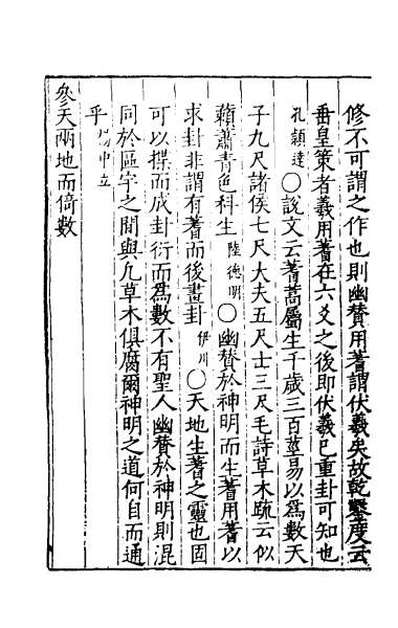 修不可謂之作也則幽賛用蓍謂伏羲矣故乾鑿度云
垂皇策者羲用蓍在六爻之後即伏羲已重卦可知也
孔頴達〇說文云蓍蒿屬生千歲三百莖易以為數天
子九尺諸侯七尺大夫五尺士三尺毛詩草木䟽云似
藾蕭青色科生陸德明〇幽賛於神明而生蓍用蓍以
求卦非謂有蓍而後畫卦伊川〇天地生蓍之靈也固
可以揲而成卦衍而為數不有聖人幽賛於神明則混
同於區宇之間與凡草木俱腐爾神明之道何自而通
乎楊中立
參天兩地而倚數